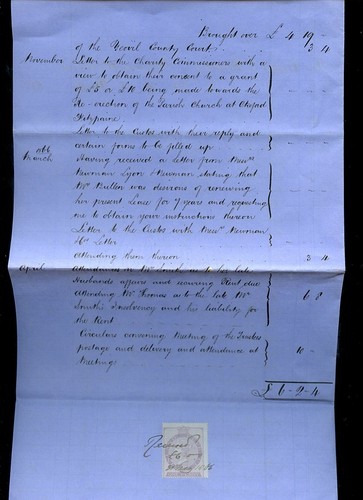 Brought over £ 4 19 -
of the Yeovil County Court 3 4
November Letter to the Charity Commissioners with a
view to obtain their consent to a grant
of £5 or £10 being made towards the
Re-erection of the Parish Church at
Fitzpaine
Letter to the Custos with their reply and
certain forms to be filled up
March Having received a Letter from Messrs
Newman Lyon & Newman stating that
Mrs Bullen was desirous of renewing
her present Lease for 7 years and requesting
me to obtain your instructions thereon
Letter to the Custos with Messrs Newman
& Co's Letter
Attending them thereon 3 4
April Attendances on Mrs Smith as to her late
Husbands affairs and arrears Rent due
Attending Mr Thomas as to the late Mr
Smith's Insolvency and his liability for
the Rent 6 8
Circulars convening Meeting of the Trustees
postage and delivery and attendance at
Meetings 10 -
£ 6-2-4
Received